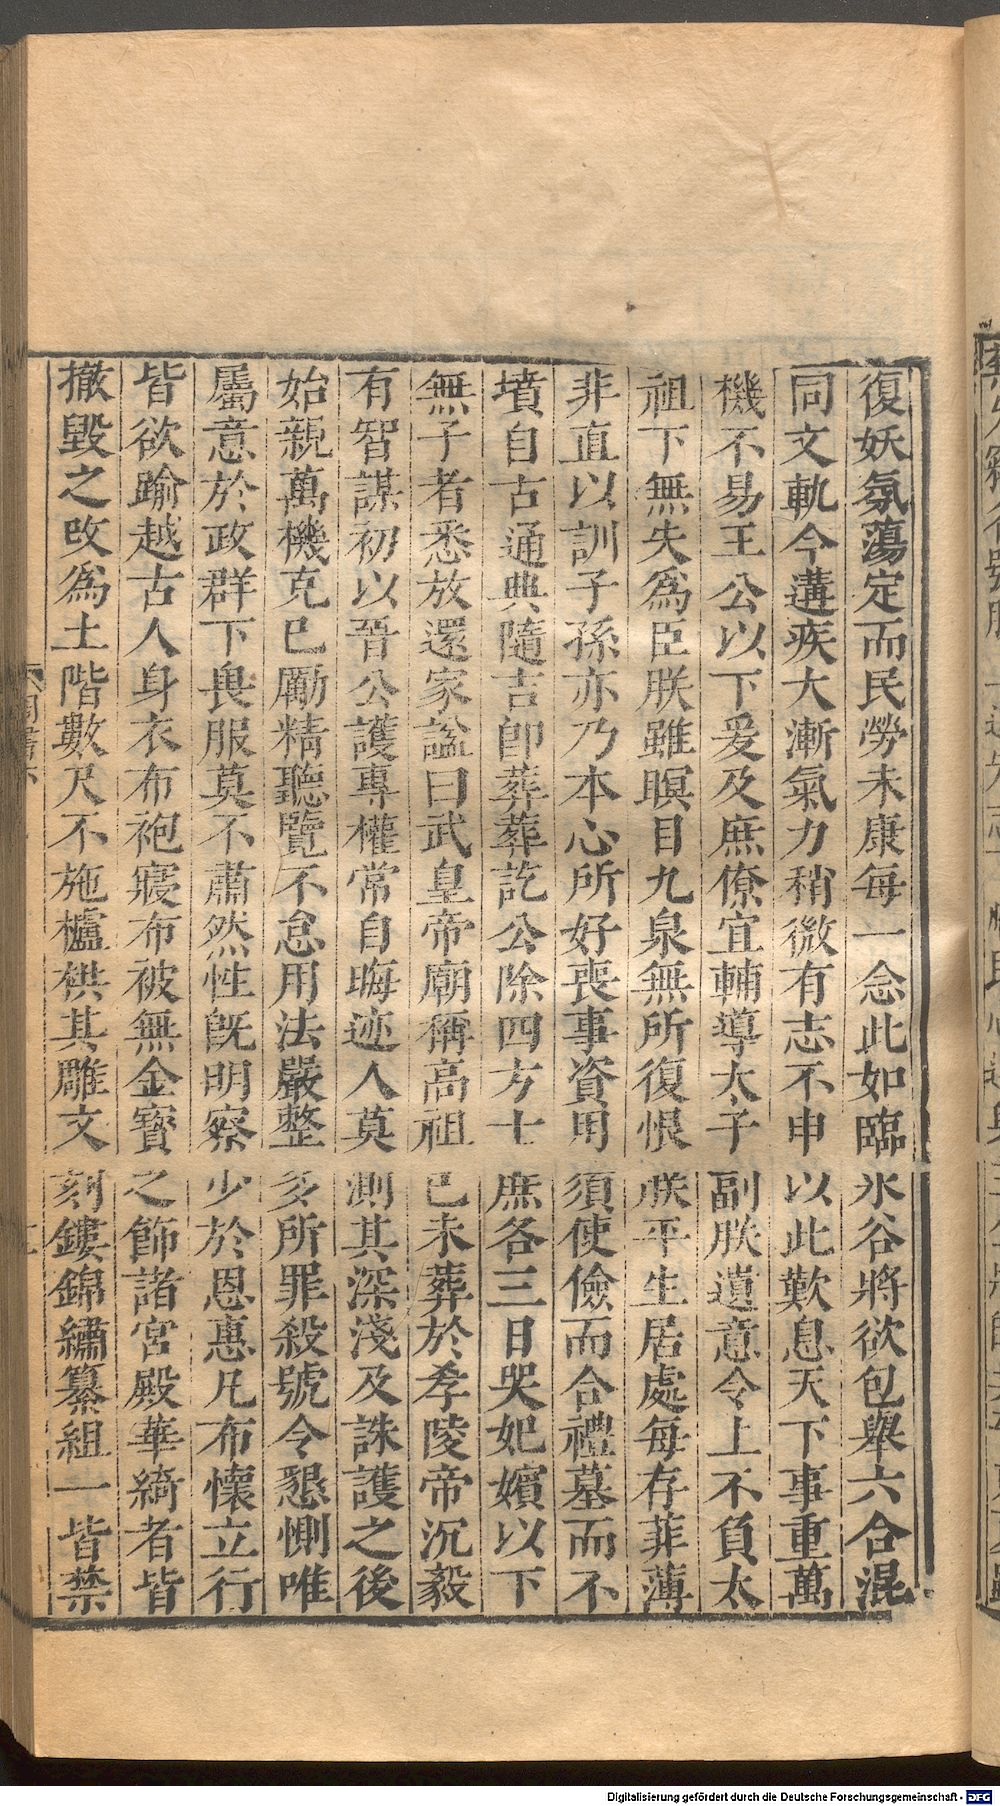 復妖氛蕩定而民勞未康每一念此如臨氷谷將欲包舉六合混
同文軌今遘疾大漸氣力稍微有志不申以此歎息天下事重萬
機不易王公以下爰及庶僚宜輔導太子副朕遺意令上不負太
祖下無失爲臣朕雖瞑目九泉無所復恨朕平生居處每存菲薄
非直以訓子孫亦乃本心所好喪事資用須使儉而合禮墓而不
墳自古通典隨吉卽葬葬訖公除四方士庶各三日哭妃嬪以下
無子者悉放還家諡曰武皇帝廟稱高祖已未葬於孝陵帝沉毅
有智謀初以晉公護專權常自晦迹人莫測其深淺及誅護之後
始親萬機克已勵精聽覽不怠用法嚴整多所罪殺號令懇惻唯
屬意於政群下畏服莫不肅然性旣明察少於恩惠凡布懷立行
皆欲踰越古人身衣布袍寢布被無金寶之飾諸宮殿華綺者皆
撤毀之改爲土階數尺不施櫨栱其雕文刻鏤錦繡纂組一皆禁
Digitalisierung gefördert durch die Deutsche Forschungsgemeinschaft - DFG